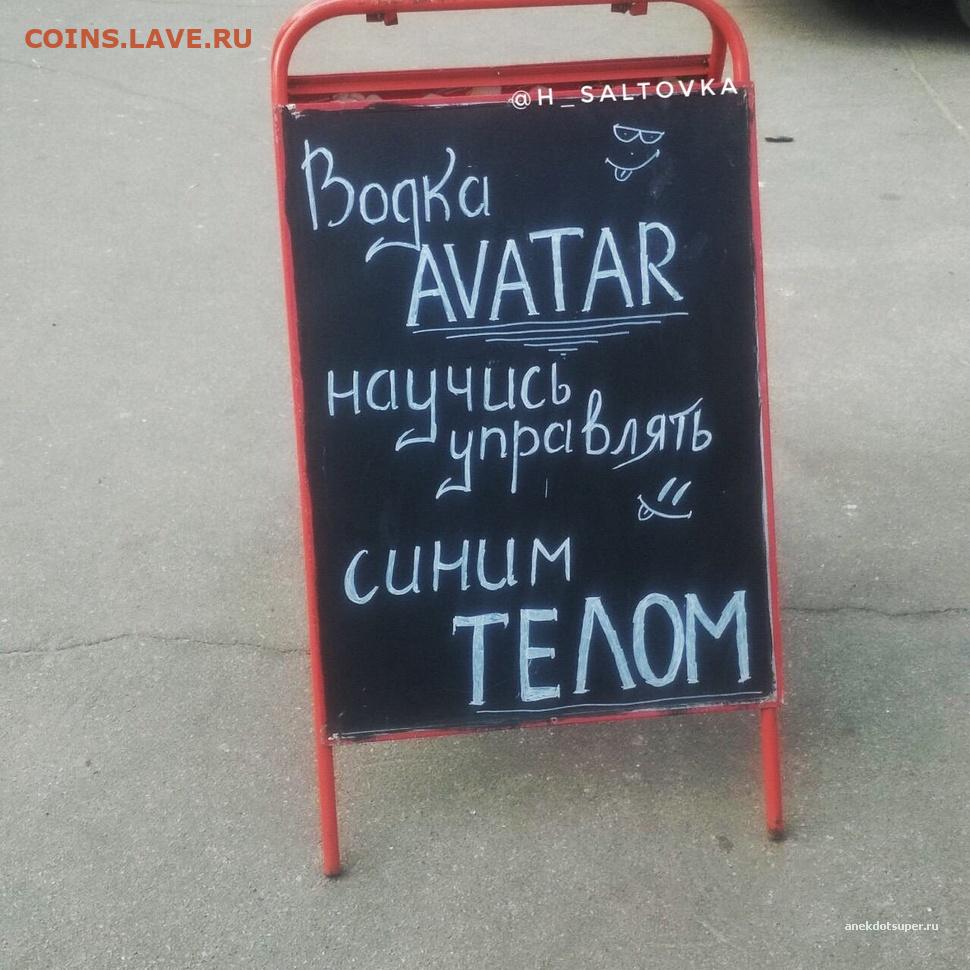 COINS.LAVE.RU
@H_SALTOVKA
Водка
AVATAR
научись
управлять
синим
ТЕЛОМ
anekdotsuper.ru